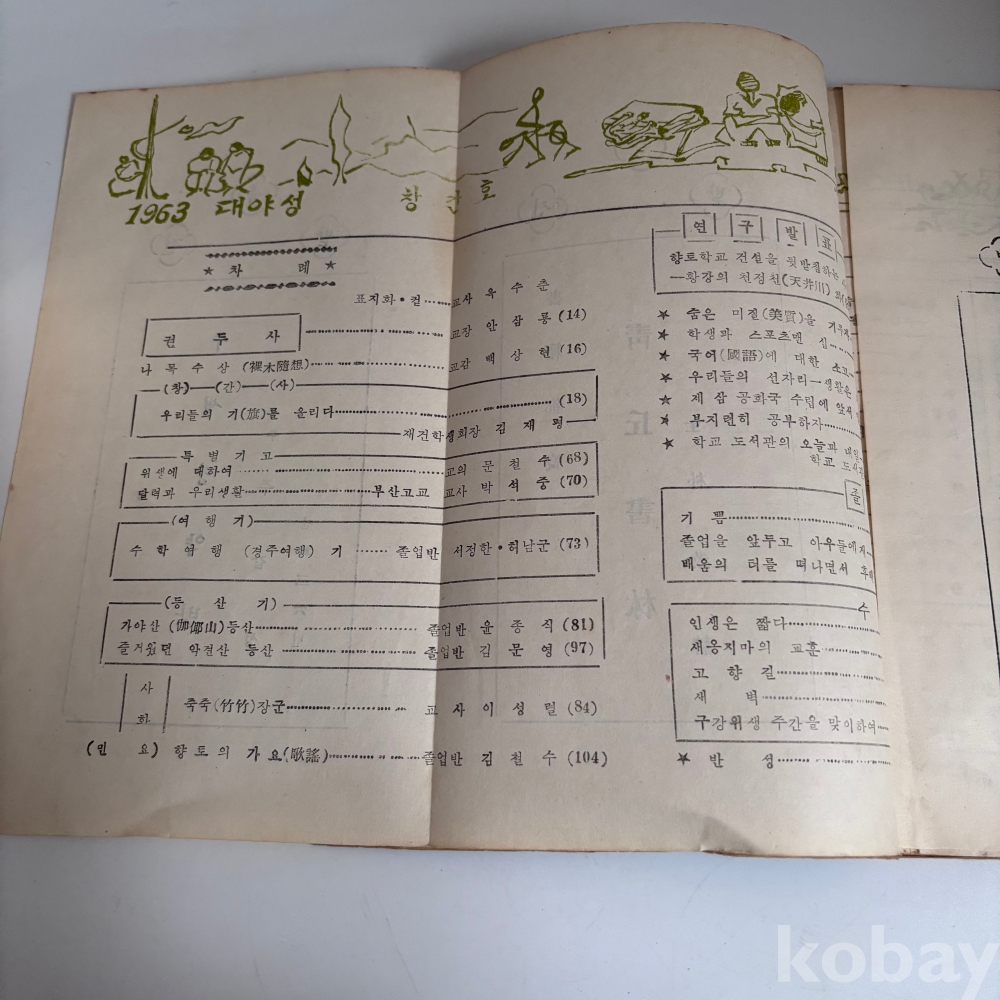 1963 대야성 창간호
★ 차 례 ★
표지화·컽 교사 옥수춘
권두사 교장 안삼룡 (14)
나목수상 (裸木隨想) 교감 백상현 (16)
(창)—(간)—(사)
우리들의 기(旗)를 올리다 (18)
재건학생회장 김재평
특별기고
위생에 대하여 교의 문철수 (68)
달력과 우리생활 부산고교 교사 박석중 (70)
(여행기)
수학여행 (경주여행) 기 졸업반 서정한·허남군 (73)
(등산기)
가야산 (伽倻山) 등산 졸업반 윤종직 (81)
즐거웠던 악견산 등산 졸업반 김문영 (97)
사화
죽죽(竹竹)장군 교사 이성렬 (84)
(민요) 향토의 가요(歌謠) 졸업반 김철수 (104)
연구발표
향토학교 건설을 뒷받침하는
—황강의 천정천(天井川)
★ 숨은 미질(美質)을
★ 학생과 스포츠맨 십
★ 국어(國語)에 대한 소고
★ 우리들의 선자리—생활은
★ 제삼공화국 수립에 앞서
★ 부지런히 공부하자
★ 학교 도서관의 오늘과
학교
졸
기쁨
졸업을 앞두고 아우들에게
배움의 터를 떠나면서
수
인생은 짧다
새옹지마의 교훈
고향길
새벽
구강위생 주간을 맞이하여
★ 반성
kobay